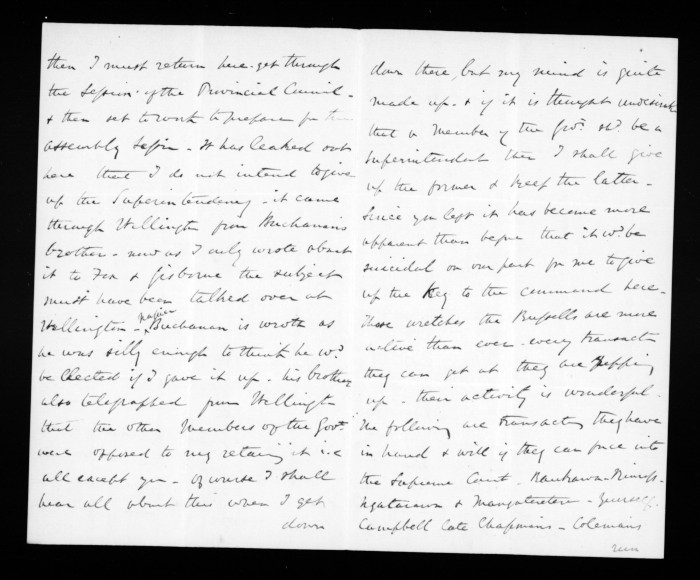 then I must return here - get through
the Session of the Provincial Council -
& then set to work to prepare for the
assembly Session - It has leaked out
here that I do not intend to give
up the Superintendency - it came
through Wellington from Buchanan's
brother - now as I only wrote about
it to Fox & Gisborne the subject
must have been talked over at
Wellington - Buchanan is wroth as
he was silly enough to think he wd.
be elected if I gave it up - his brother
also telegraphed from Wellington
that the other Members of the Govt.
were opposed to my retaining it i.e
all except you - of course I shall
hear all about this when I get
down
down there, but my mind is quite
made up - & if it is thought undesirable
that a Member of the Govt. shd. be a
Superintendent then I shall give
up the former & keep the latter -
Since you left it has become more
apparent than before that it wd. be
suicidal on our part for me to give
up the Key to the command here -
These wretches the Russells are more
active than ever - every transactn
they can get at they are ripping
up - their activity is wonderful.
The following are transactns they have
in hand & will if they can force into
the Supreme Court -
Ngatarawa & Mangateretere - yourself.
Campbell late Chapmans - Colemans
run